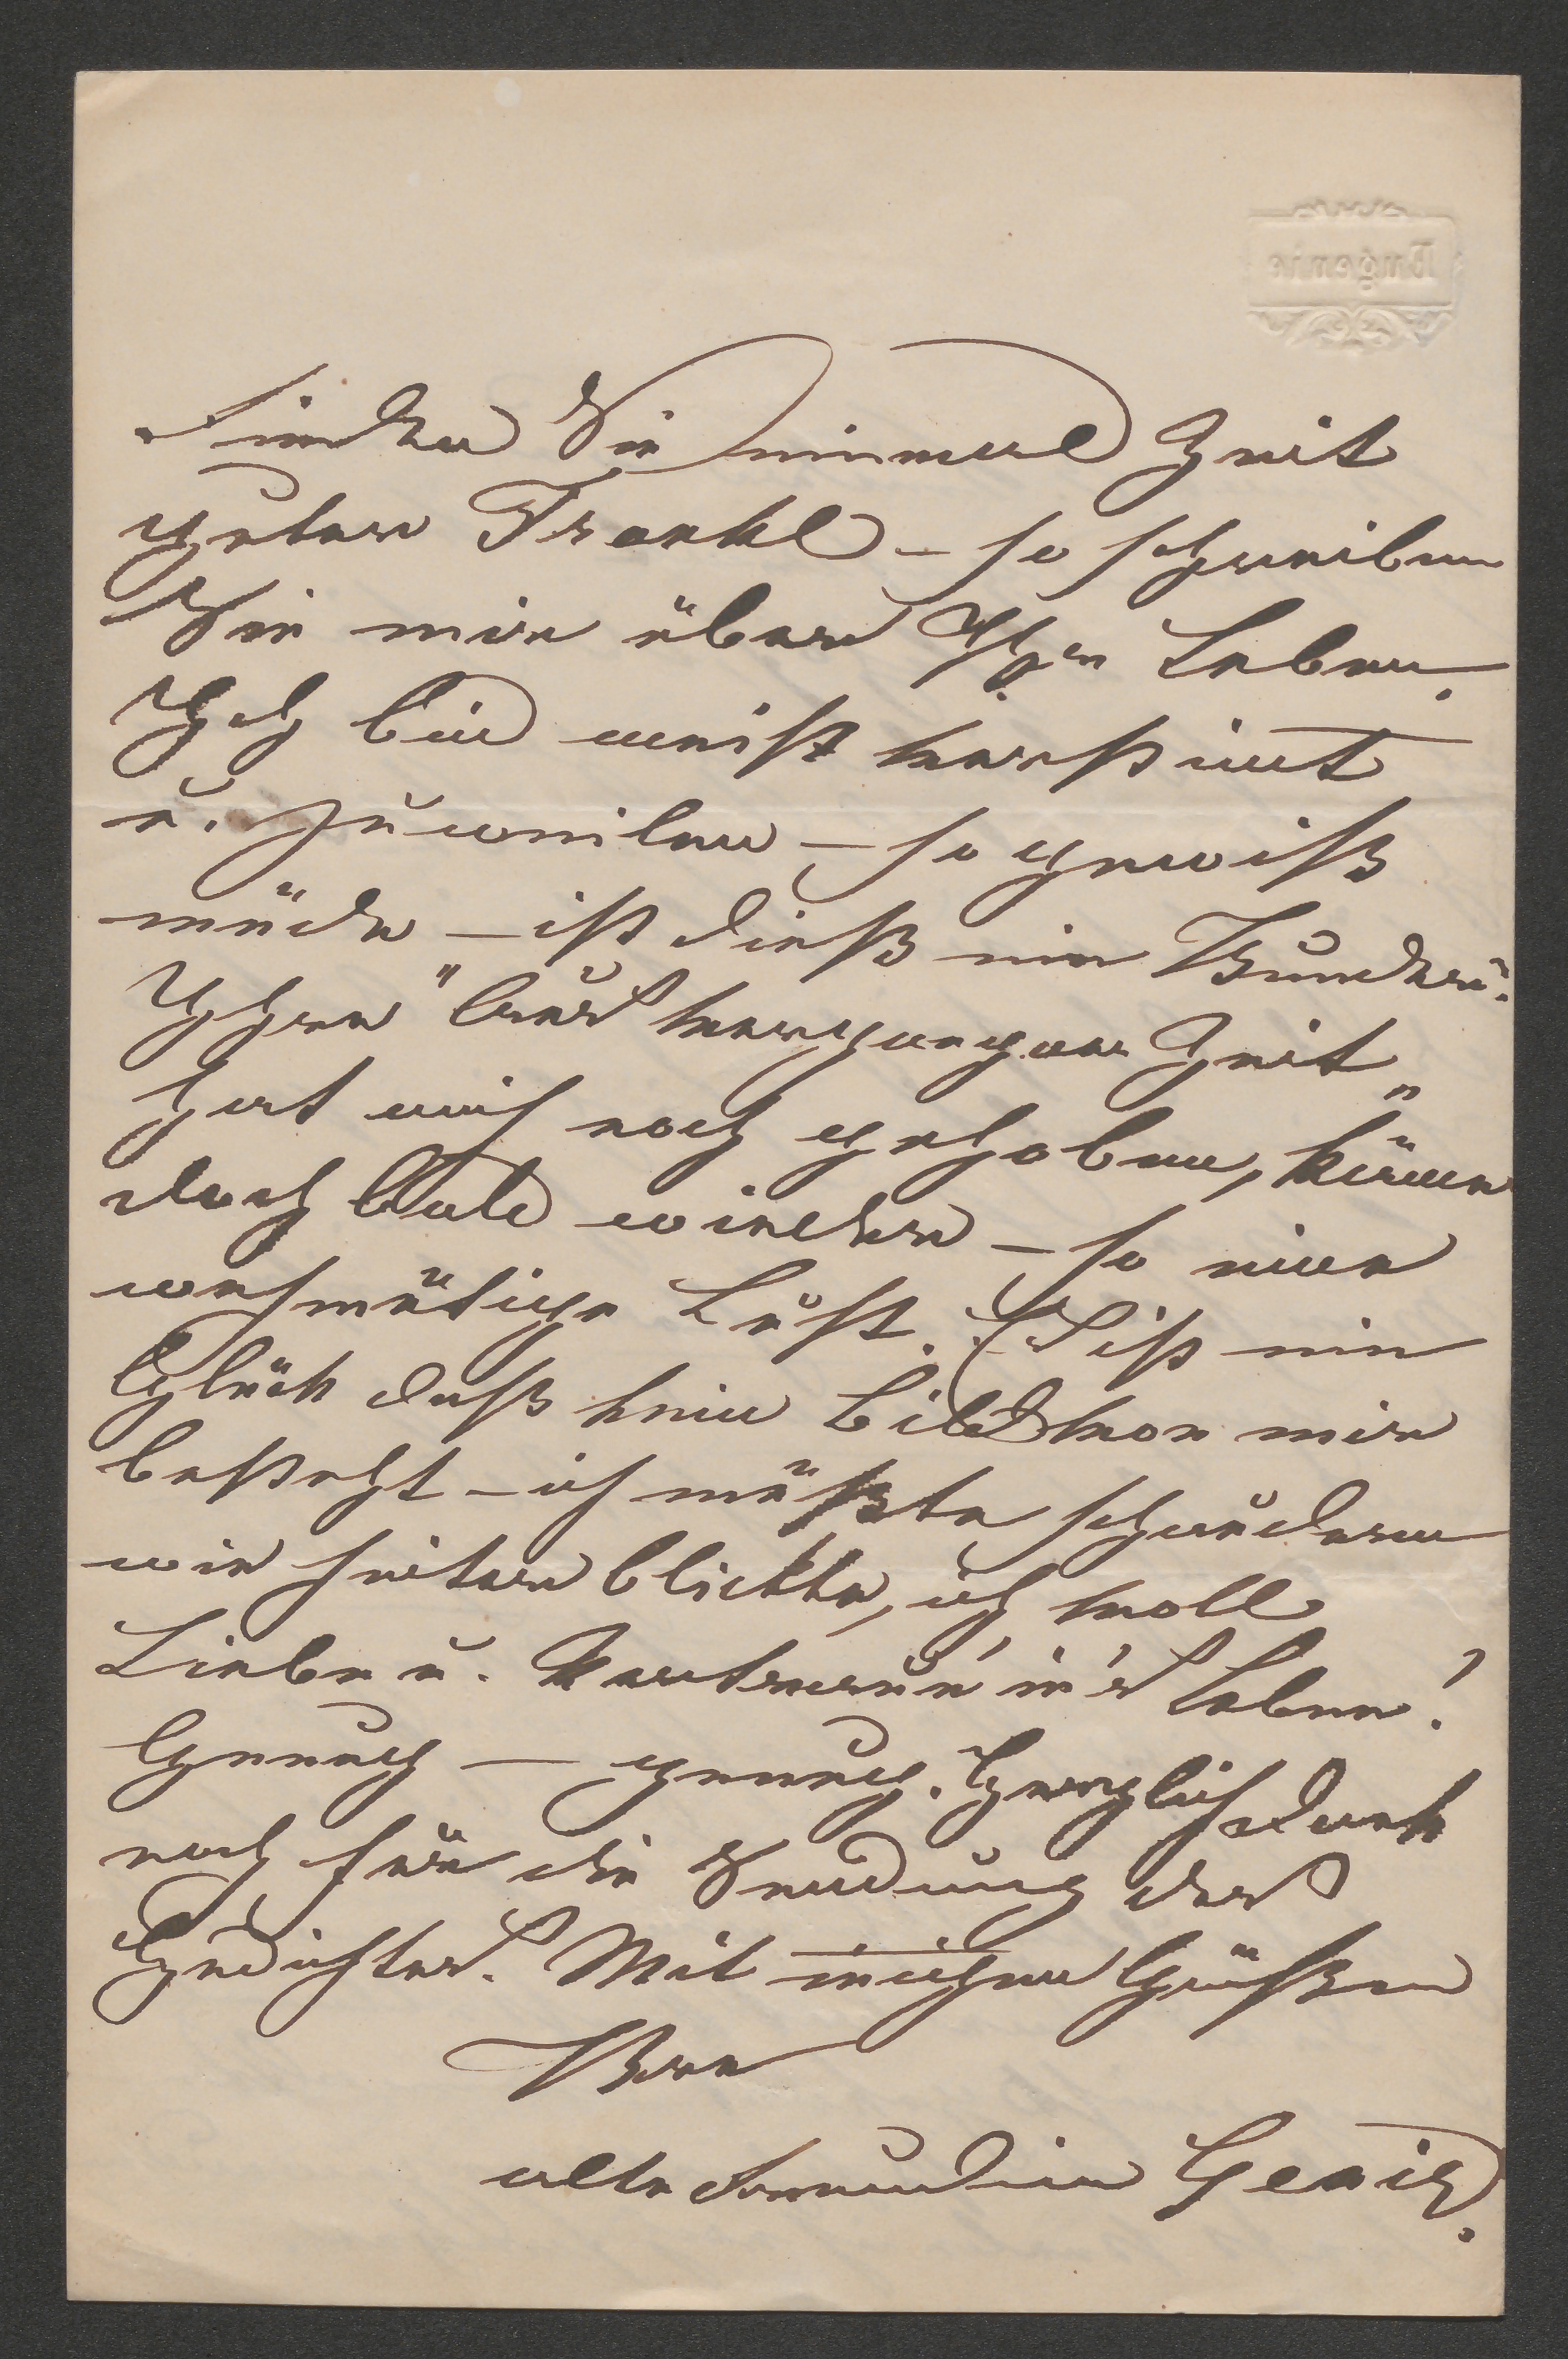 Eugenie
Finden Sie einmal Zeit
guter Frankl – so schreiben
Sie mir über Ihr Leben.
Ich bin meist verstimt
u. zuweilen – so gewiß
müde – ist dieß ein Wunder?
Ihr "aus vergangner Zeit"
hat mich noch gehoben, käme
doch bald wieder – so eine
wehmütige Lust. Es ist ein
Glück daß kein Bild von mir
besteht – ich müßte schaudern
wie heiter blickte, ich voll
Liebe u. Vertrauen in's Leben!
Genug – genug. Herzlich Dank
noch für die Sendung des
Gedichtes. Mit innigen Grüßen
Ihre
alte Freundin Henie.